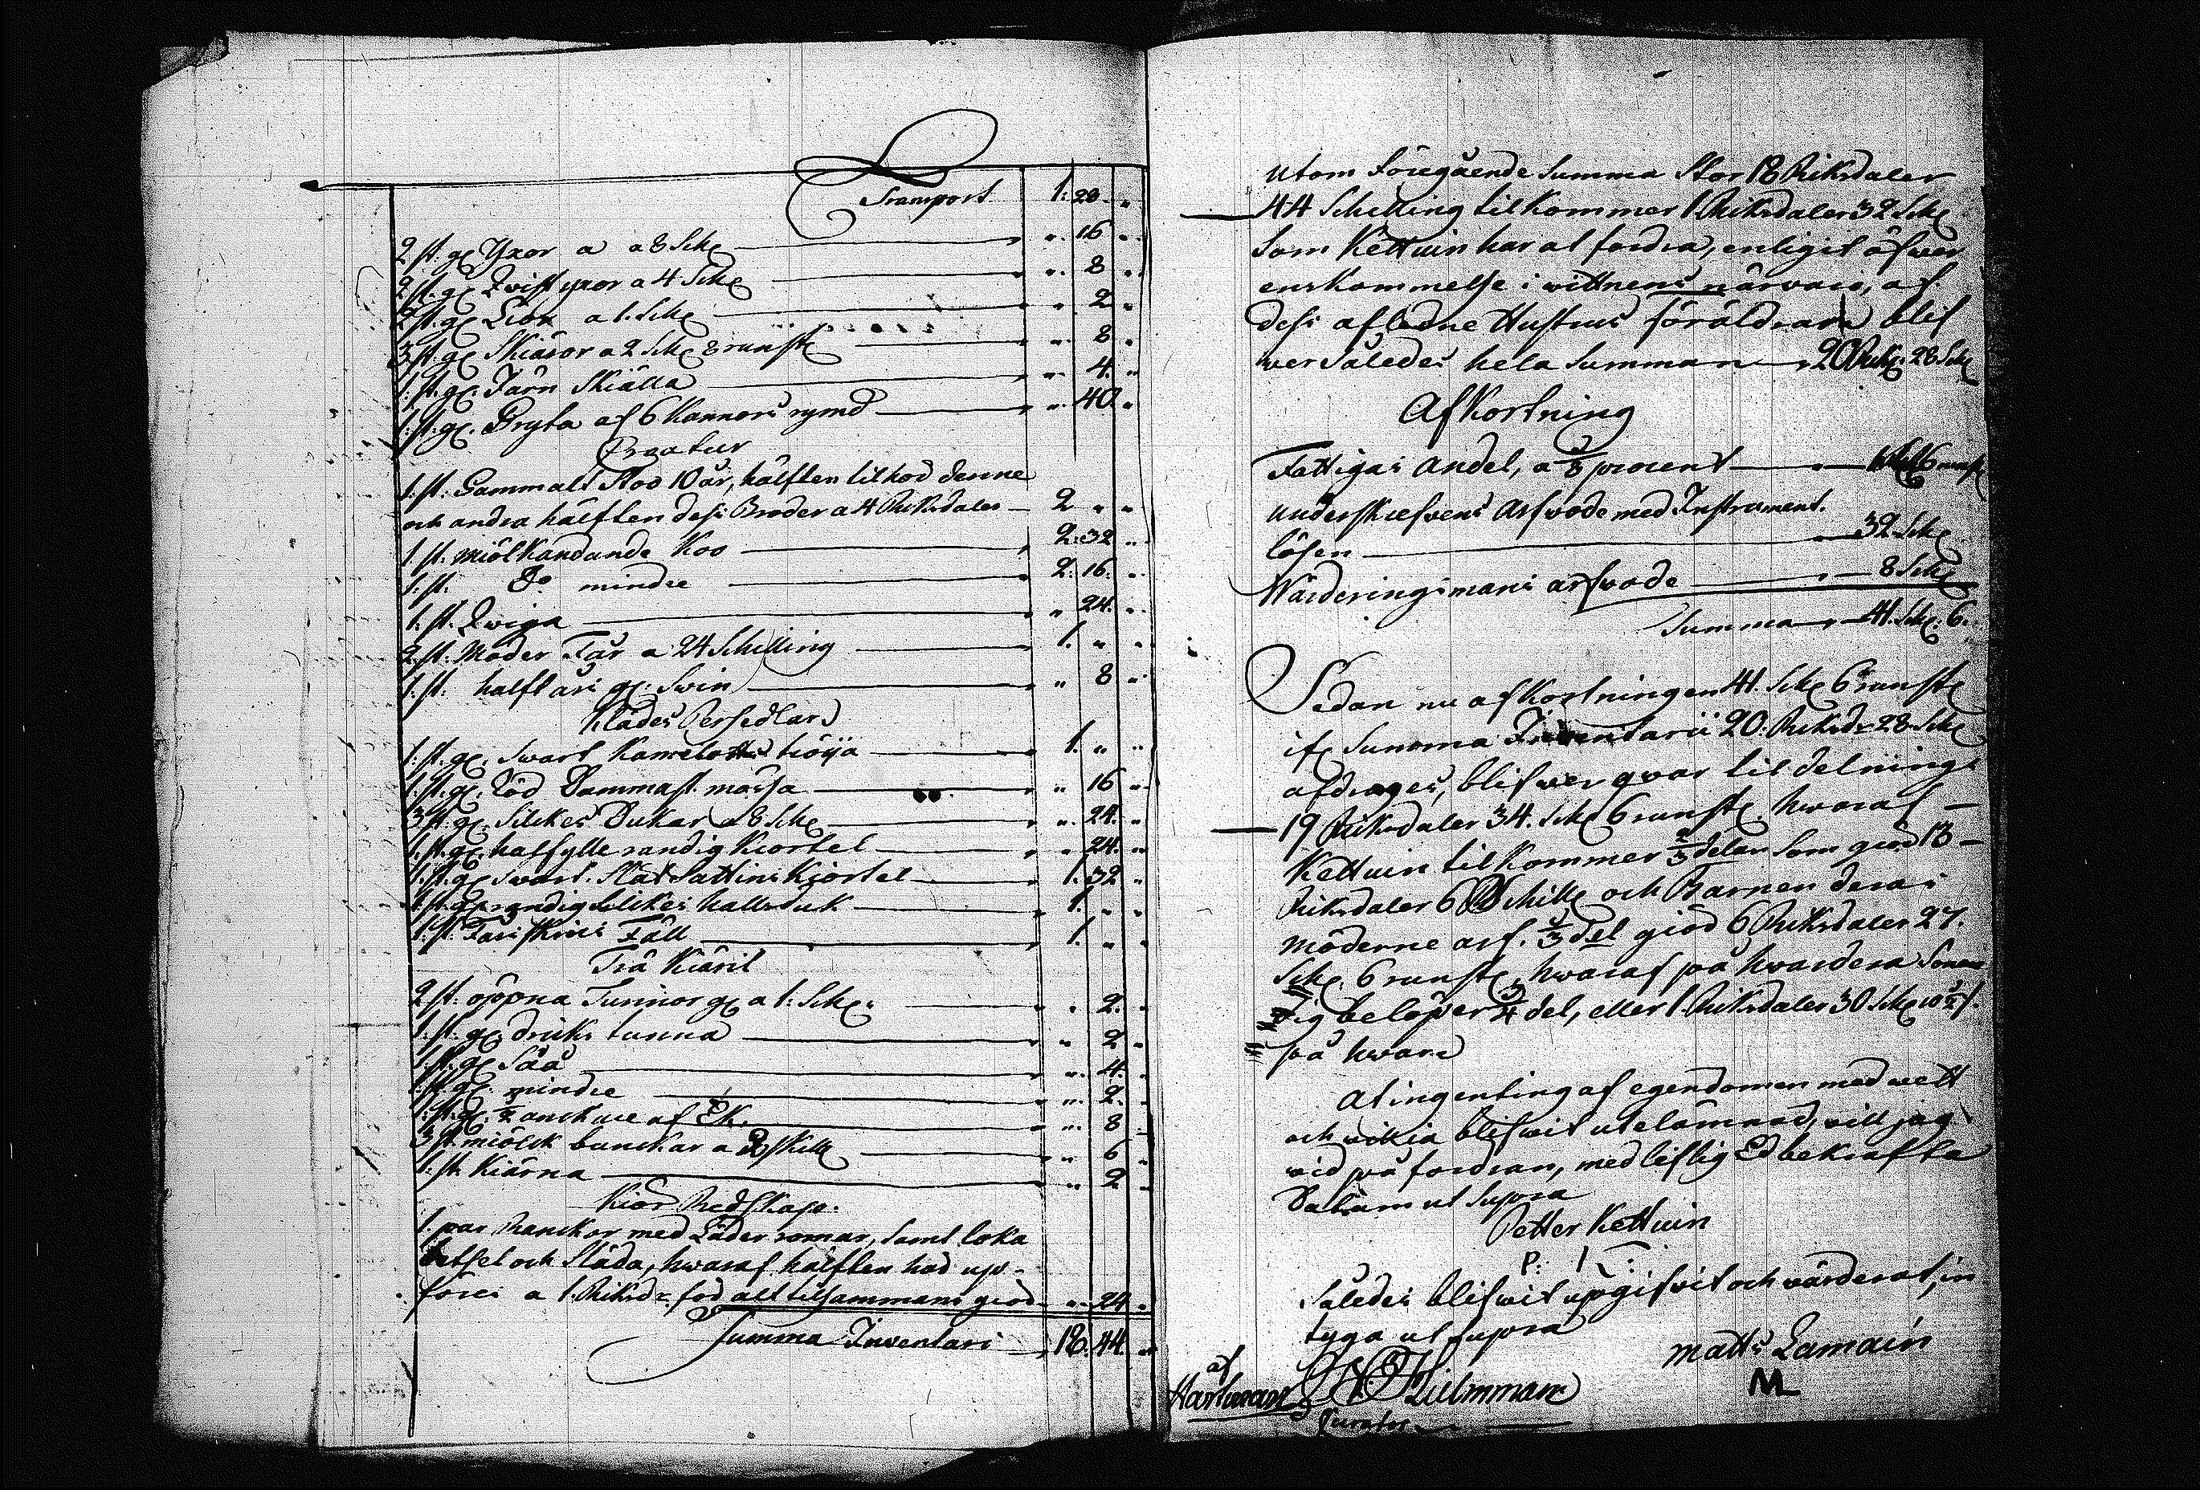 Transport 1: 28 "
2 st: gl Yxor a 8 Sk ". 16 "
2 st. gl Qvistyxor a 4 Sk ". 8 "
2 st. gl Liar a 1. Sk " 2 "
3 st gl Skiäror a 2 Sk 8 runst " 8 "
1. st gl. Järn Skiälla " 4. "
1. st. gl. Gryta af 6 Kannors rymd " 40 "
Creatur
1. st: Gammalt Stod 10 år, hälften tilhod denne
och andra hälften dess Broder a 4 Riksdaler 2 " "
1 st. miölkandande Koo 2: 32 "
1. st. Do mindre 2: 16. "
1. st. Qviga " 24. "
2. st. Moder Får a 24 Schilling 1. " "
1. st. halft års gl. Swin " 8 "
Klädes Persedlar
1. st. gl. Swart Kamelotts tröija 1. " "
1. st. gl. Röd Dammast. mössa " 16 "
3 st. gl. Silckes Dukar a 8 Sk " 24. "
1. st. gl. halfylle randig Kiortel " 24. "
1. st. gl swart. Slät Sattins Kiortel 1. 32 "
1. st. gl. randig Silckes halsduk 1. " "
1. st. Fårskins Fäll 1. " "
Trä Kiäril
2 st. öppna Tunnor gl a 1. Sk. " 2. "
1. st. gl. dricks tunna " 2 "
1. st. gl Såå " 4. "
1. st. gl. mindre " 2. "
1. st. gl. 1/2 anckare af Ek. " 8 "
3 st. miölck bunckar a 2 skill " 6 "
1. st. Kiärna " 2 "
Kiör Redskap.
1. par Ranckor med Läder romar, samt loka
betsel och Släda, hwaraf hälften hod up-
föres a 1. Riksd: hod alt tilsammans giör " 24 "
Summa Inventari 18. 44 "
Utom Föregående Summa Stor 18 Riksdaler
44 Schilling tilkommer 1. Riksdaler 32 Sk
Som Kettuin har at fordra, enligit öfwer
enskommelse i wittnens närvaro, af
dess afledne Hustrus föräldrar blif
wer Således hela Summan 20 Riks. 28 Sk
Afkortning
Fattigas Andel, a 1/8 procent 1 Sk 6 runst
Underskrefvens Arfvode med Instrument.
lösen 32 Sk
Wärderingsmans arfvode 8 Sk
Summa 41. Sk: 6.
Sedan nu afkortningen 41. Sk 6 runst
if Summa Inventarii 20. Riksd: 28 Sk
afdrages, blifwer qvar til delning:
19 Riksdaler 34. Sk 6 runst. hwaraf
Kettuin tilkommer 2/3 delar Som giör 13
Riksdaler 6 Schill och Barnen deras
möderne arf. 1/3 del giör 6 Riksdaler 27.
Sk. 6 runst, hwaraf på hwardera Sonen
sig belöper 1/4 del, eller 1. Riksdaler 30 Sk 10 1/2 r.
på hwar
At ingenting af egendomen med wett
och wilja blifwit utelämnad, vill jag
wid på fordran, med liflig Ed bekräfta
Datum ut Supra
Petter Kettuin
P: K:
Således blifwit upgifvit och värderat, in
tyga ut supra
af
Matts Lamain
M